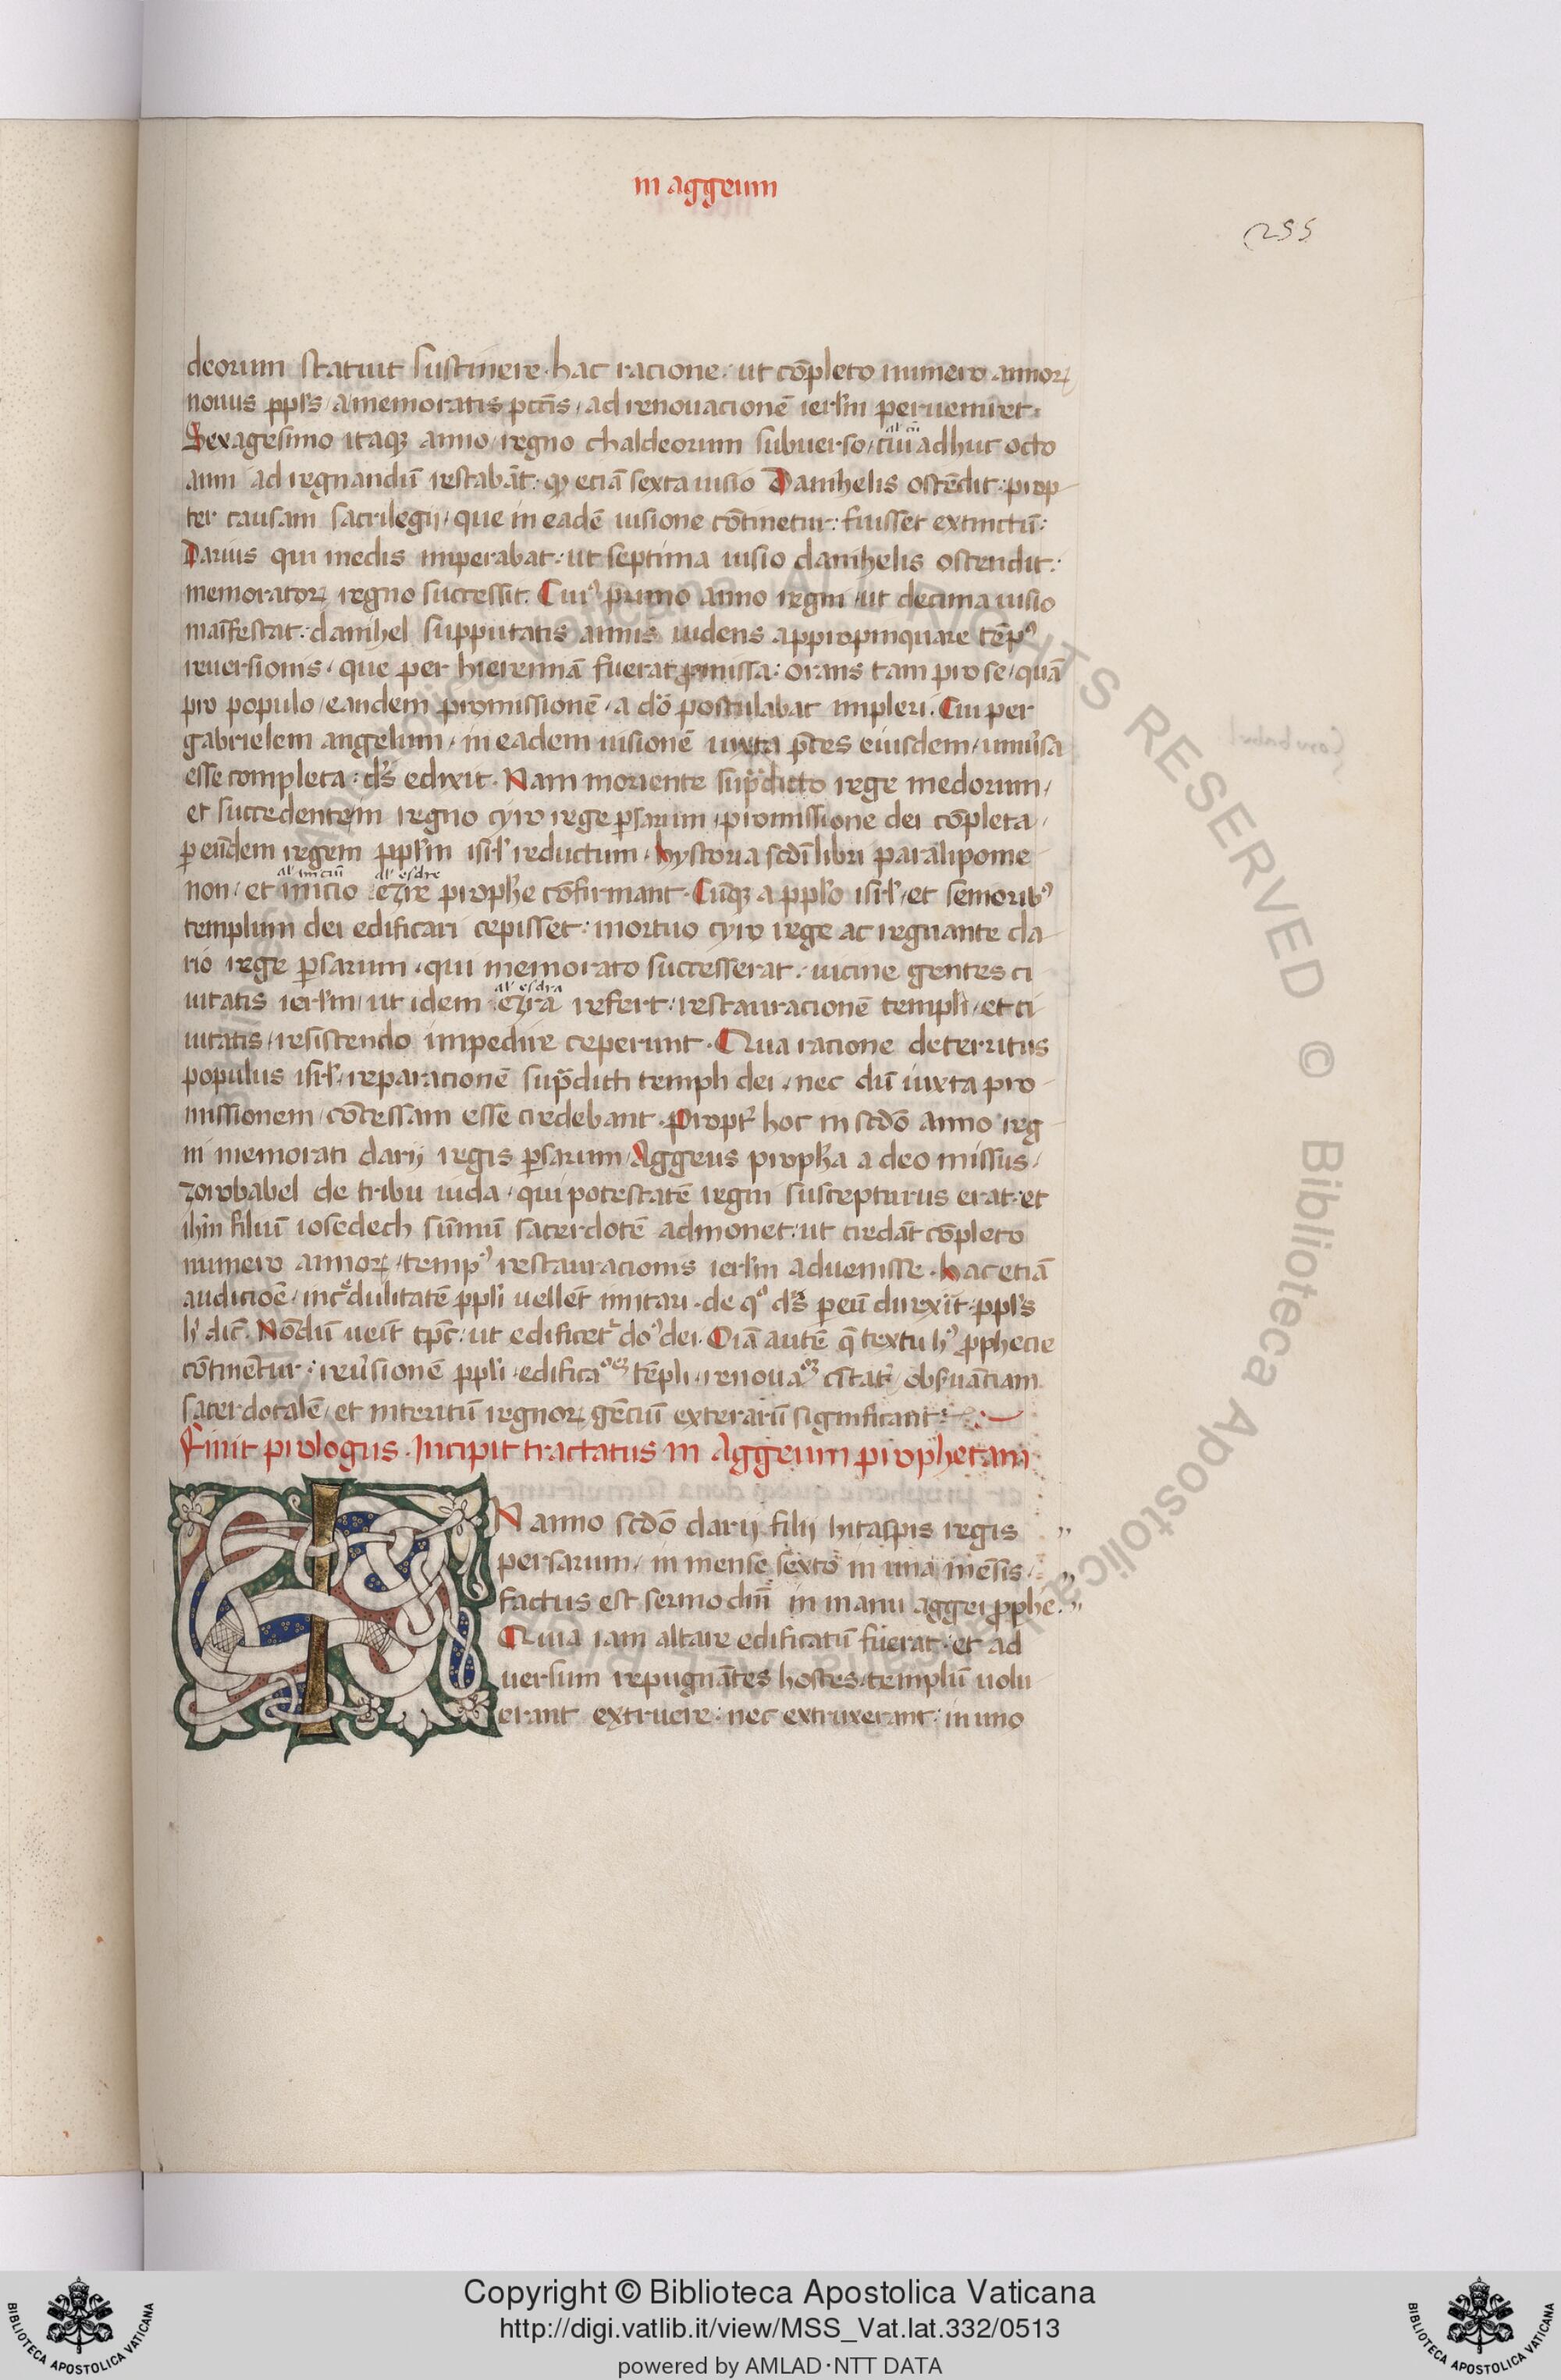 in aggeum
255
deorum statuit sustinere. hac racione. ut cōpleto numero annoꝝ
nouus ppl's / a memoratis pctīs / ad renouacionē ierl'm perueniret.
Sexagesimo itaqꝫ anno / regno chaldeorum subuerso / cui adhuc octo
al' cū
anni ad regnandū restabāt. qđ eciā sexta uisio Danihelis ostēdit. prop
ter causam sacrilegij / que in eadē uisione cōtinetur: fuisset extinctū:
Darius qui medis imperabat: ut septima uisio danihelis ostendit:
memoratoꝝ regno successit. Cuiꝰ primo anno regni / ut decima uisio
maīfestat: danihel supputatis annis uidens appropinquare tēpꝰ
reuersionis / que per hieremiā fuerat ꝓmissa: orans tam pro se / quā
pro populo / eandem promissionē / a dō postulabat impleri. Cui per
gabrielem angelum / in eadem uisionē iuxta p̄ces eiusdem / uniu'sa
esse completa: d's edixit. Nam moriente sup̄dicto rege medorum /
et succedentem regno cyro rege ꝑsarum / promissione dei cōpleta /
ꝑ eūdem regem ppl'm isr'l reductum / hystoria scdī libri paralipome
al' iniciū al' esdre
non / et inicio ezre proph'e cōfirmant. Cūqꝫ a ppl'o isr'l / et senioribꝰ
templum dei edificari cepisset: mortuo cyro rege ac regnante da
rio rege ꝑsarum / qui memorato successerat: uicine gentes ci
al' esdra
uitatis ierl'm / ut idem ezra refert: restauracionē templi / et ci
uitatis / resistendo impedire ceperunt. Qua racione deterritus
populus isr'l / reparacionē sup̄dicti templi dei / nec dū iuxta pro
missionem / cōcessam esse credebant. Propt' hoc in scdō anno reg
ni memorati darij regis ꝑsarum / Aggeus proph'a a deo missus /
zorobabel de tribu iuda / qui potestatē regni suscepturus erat: et
ih'm filiū iosedech sūmū sacerdotē admonet: ut credāt cōpleto
numero annoꝝ / tempꝰ restauracionis ierl'm aduenisse. hac etiā
audicioē / incͤdulitatē ppl'i uellēt imitari. de qͦ d's ꝑ eū direxit: ppl's
h' dic̄. Nōdū ueīt tp̄c: ut edificet' doꝰ dei. Oīa autē q̄ textu hꝰ ꝓphecie
cōtinētur: reu'sionē ppl'i / edificaͦeꝫ tēpli / renouaͦeꝫ cītat' / obs'uāciam
sacerdotalē / et interitū regnoꝝ gēciū exterarū significant:
Finit prologus. Incipit tractatus in Aggeum prophetam
IN anno scdō darij filij hitaspis regis
persarum / in mense sexto in una mēsis /
factus est sermo dn̄i in manu aggei ꝓph'e.
Quia iam altare edificatū fuerat: et ad
uersum repugnātes hostes / templū uolu
erant extruere: nec extruxerant: in uno
Copyright © Biblioteca Apostolica Vaticana
http://digi.vatlib.it/view/MSS_Vat.lat.332/0513
powered by AMLAD·NTT DATA